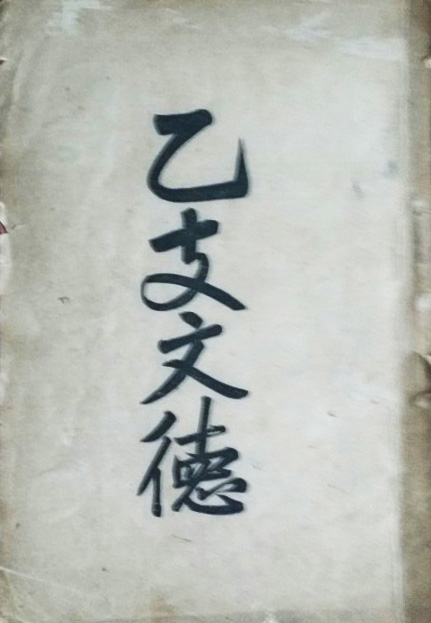 乙支文德